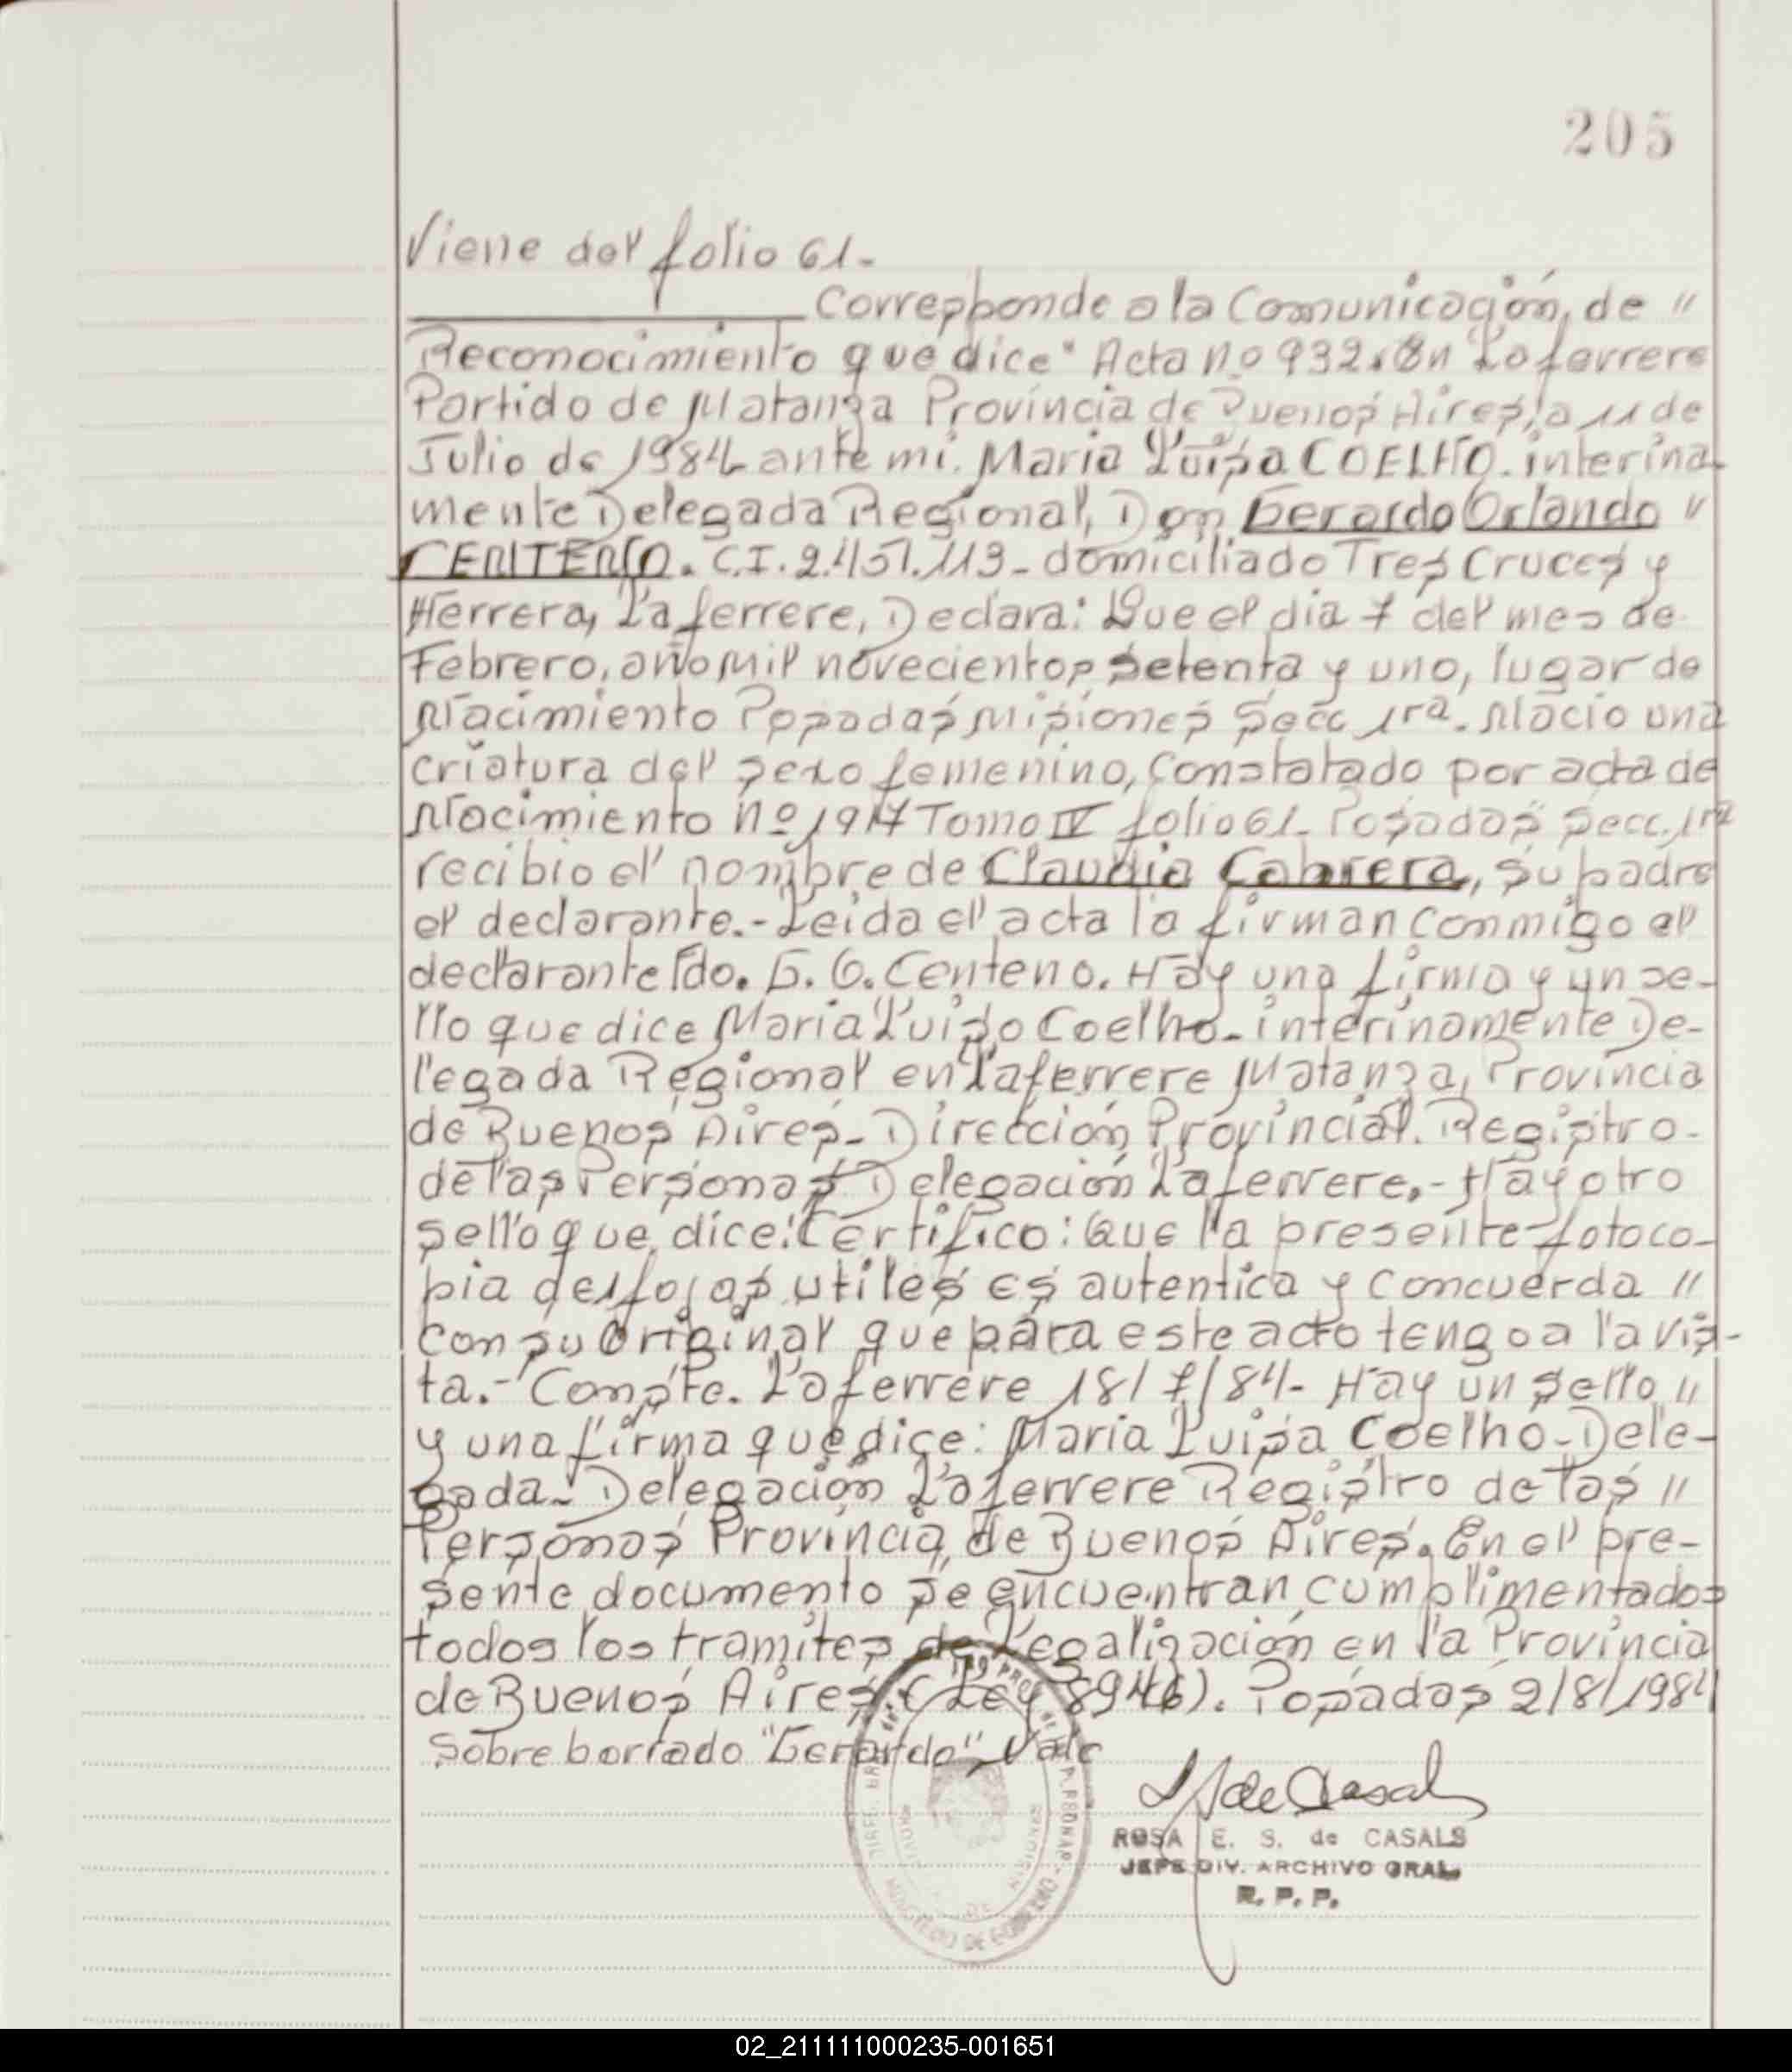 205
Viene del folio 61.-
Corresponde a la Comunicación de "
Reconocimiento que dice" Acta nº 932. En Laferrere
Partido de Matanza Provincia de Buenos Aires, a 11 de
Julio de 1984 ante mi. Maria Luisa COELHO. interina-
mente Delegada Regional, Don Gerardo Orlando "
CENTENO. C.I. 2.451.113 - domiciliado Tres Cruces y
Herrera, Laferrere, Declara: Que el dia 7 del mes de
Febrero, año Mil novecientos setenta y uno, lugar de
Nacimiento Posadas Misiones Secc 1ra. Nacio una
criatura del sexo femenino, Constatado por acta de
Nacimiento nº 1917 Tomo IV folio 61. Posadas Secc. 1ra
recibio el nombre de Claudia Cabrera, su padre
el declarante.- Leida el acta la firman conmigo el
declarante Fdo. G. O. Centeno. Hay una firma y un se-
llo que dice Maria Luisa Coelho - interinamente De-
legada Regional en Laferrere Matanza, Provincia
de Buenos Aires - Dirección Provincial. Registro -
de las Personas Delegación Laferrere.- Hay otro
sello que dice: Certifico: Que la presente fotoco-
pia de 1 fojas utiles es autentica y concuerda "
con su original que para este acto tengo a la vis-
ta.- Conste. Laferrere 18/7/84 - Hay un sello "
y una firma que dice: Maria Luisa Coelho - Dele-
gada - Delegación Laferrere Registro de las "
Personas Provincia de Buenos Aires. En el pre-
sente documento se encuentran cumplimentados
todos los tramites de Legalización en la Provincia
de Buenos Aires (Ley 8946). Posadas 2/8/1984
Sobre borrado "Gerardo" Vale
ROSA E. S. de CASALS
JEFE DIV. ARCHIVO GRAL.
R. P. P.
02_211111000235-001651